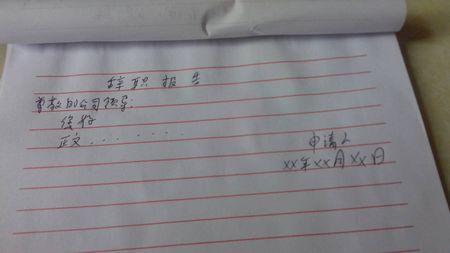 辞职报告
尊敬的公司领导:
您好
正文.......
申请人
xx年xx月xx日